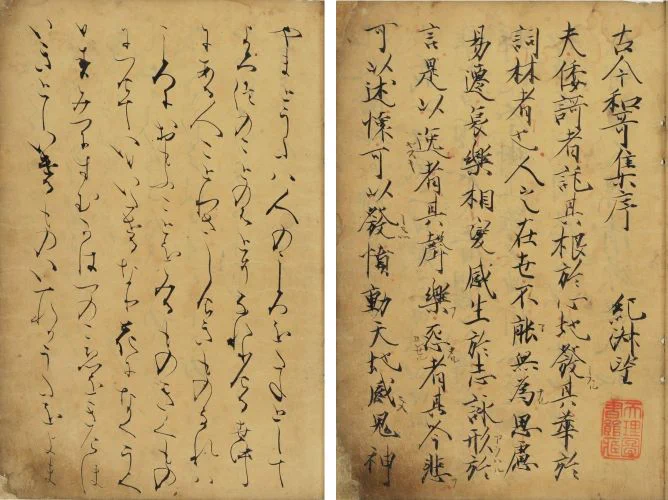 古今和哥集序
紀淑望
夫倭謌者託其根於心地發其華於
詞林者也人之在世不能無為思慮
易遷哀樂相変感生於志詠形於
言是以逸者其聲樂怨者其吟悲
可以述懐可以發憤動天地感鬼神
天理圖
書館蔵
やまとうたは人のこゝろをたねとして
よろつのことのはとそなれりける世中
にある人ことわさしけきものなれは
こゝろにおもふことをみるものきくもの
につけていひいたせるなり花になくうく
ひすみつにすむかはつのこゑをきけは
いきとしいけるものいつれかうたをよま